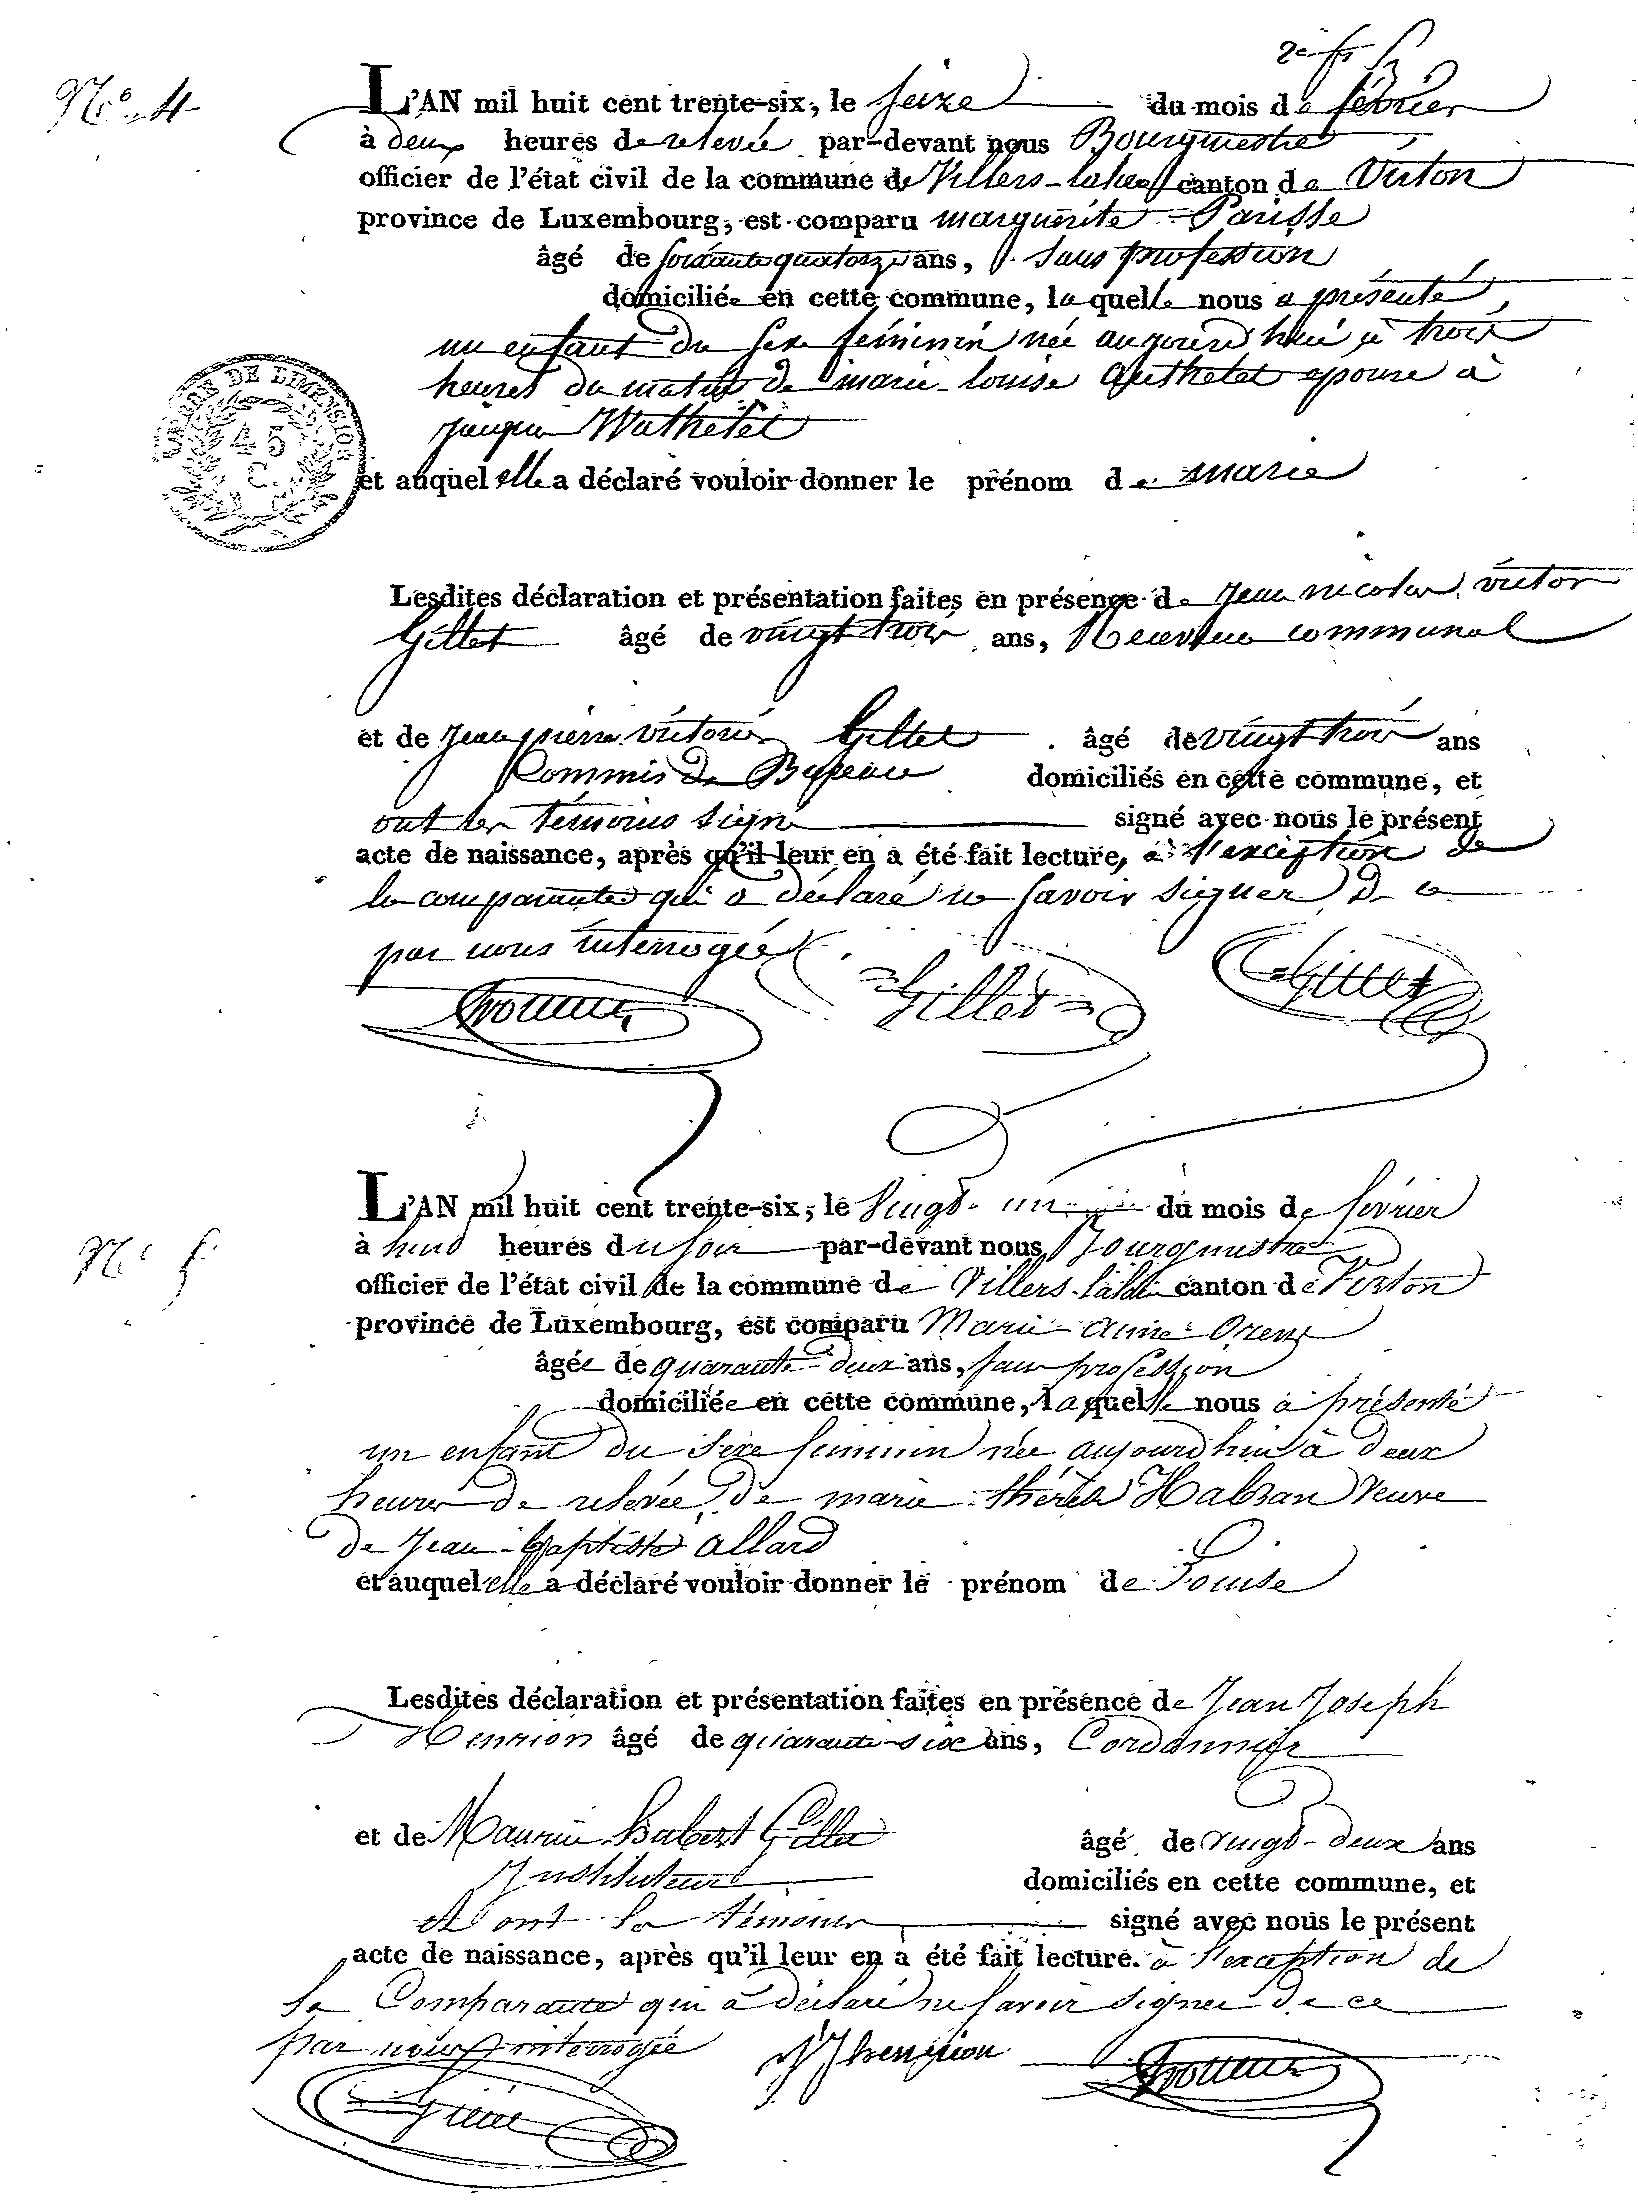 N° 4
L'AN mil huit cent trente-six, le seize du mois de février
à deux heures de relevée par-devant nous Bourgmestre
officier de l'état civil de la commune de Villers-la-loue canton de Virton
province de Luxembourg, est comparu marguerite Parisse
âgé de soixante quatorze ans, sans profession
domiciliée en cette commune, laquelle nous a présenté
un enfant du sexe féminin née aujourd'hui à trois
heures du matin de marie louise Guthelet epouse à
jacques Wathelet
et auquel elle a déclaré vouloir donner le prénom de marie
TIMBRE DE DIMENSION
45
C.
Lesdites déclaration et présentation faites en présence de Jean nicolas victor
Gillet âgé de vingt trois ans, Receveur communal
et de Jean pierre victorin Gillet âgé de vingt trois ans
Commis de Bureau domiciliés en cette commune, et
ont les témoins signé signé avec nous le présent
acte de naissance, après qu'il leur en a été fait lecture, à l'exception de
la comparante qui a déclaré ne savoir signer de ce
par nous interrogée
Gillet Gillet
N° 5
L'AN mil huit cent trente-six, le Vingt-un du mois de février
à huit heures du soir par-devant nous Bourgmestre
officier de l'état civil de la commune de Villers-la-loue canton de Virton
province de Luxembourg, est comparu Marie-anne
âgée de quarante-deux ans, sans profession
domiciliée en cette commune, laquelle nous à présenté
un enfant du sexe feminin née aujourd'hui à deux
heures de relevée, de marie thérèse Habran Veuve
de Jean-Baptiste allard
et auquel elle a déclaré vouloir donner le prénom de Louise
Lesdites déclaration et présentation faites en présence de Jean Joseph
Henrion âgé de quarante-six ans, Cordonnier
et de Maurice hubert Gillet âgé de vingt-deux ans
Instituteur domiciliés en cette commune, et
et ont les témoins signé avec nous le présent
acte de naissance, après qu'il leur en a été fait lecture. à l'exception de
la Comparante qui à déclaré ne savoir signer de ce
par nous interrogée JJ henrion